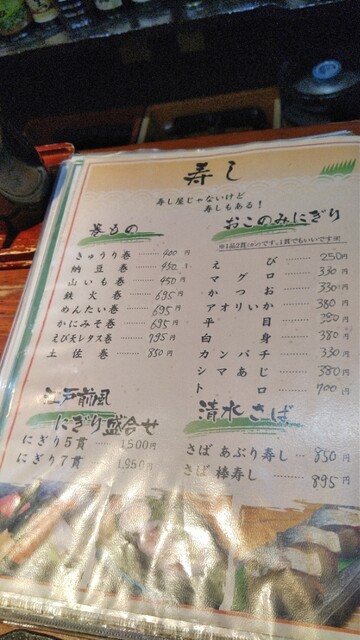 寿し
寿し屋じゃないけど
寿しもある！
巻もの
きゅうり巻 ……… 400円
納豆巻 ……… 450円
山いも巻 ……… 450円
鉄火巻 ……… 695円
めんたい巻 ……… 695円
かにみそ巻 ……… 695円
えび天レタス巻 …… 795円
土佐巻 ……… 850円
おこのみにぎり
※1品2貫(カン)です。1貫でもいいです
えび ……… 250円
マグロ ……… 330円
かつお ……… 330円
アオリいか ……… 380円
平目 ……… 380円
白身 ……… 380円
カンパチ ……… 330円
シマあじ ……… 380円
トロ ……… 700円
江戸前風
にぎり盛合せ
にぎり5貫 …… 1,500円
にぎり7貫 …… 1,950円
清水さば
さばあぶり寿し …… 850円
さば棒寿し ……… 895円